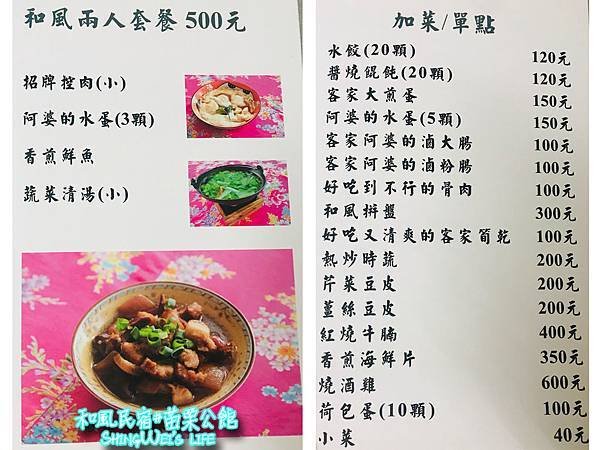 和風兩人套餐 500元
招牌控肉(小)
阿婆的水蛋(3顆)
香煎鮮魚
蔬菜清湯(小)
和風民宿#苗栗公館
SHINGWEI'S LIFE
加菜/單點
水餃(20顆) 120元
醬燒餛飩(20顆) 120元
客家大煎蛋 150元
阿婆的水蛋(5顆) 150元
客家阿婆的滷大腸 100元
客家阿婆的滷粉腸 100元
好吃到不行的骨肉 100元
和風拼盤 300元
好吃又清爽的客家筍乾 100元
熱炒時蔬 200元
芹菜豆皮 200元
薑絲豆皮 200元
紅燒牛腩 400元
香煎海鮮片 350元
燒酒雞 600元
荷包蛋(10顆) 100元
小菜 40元